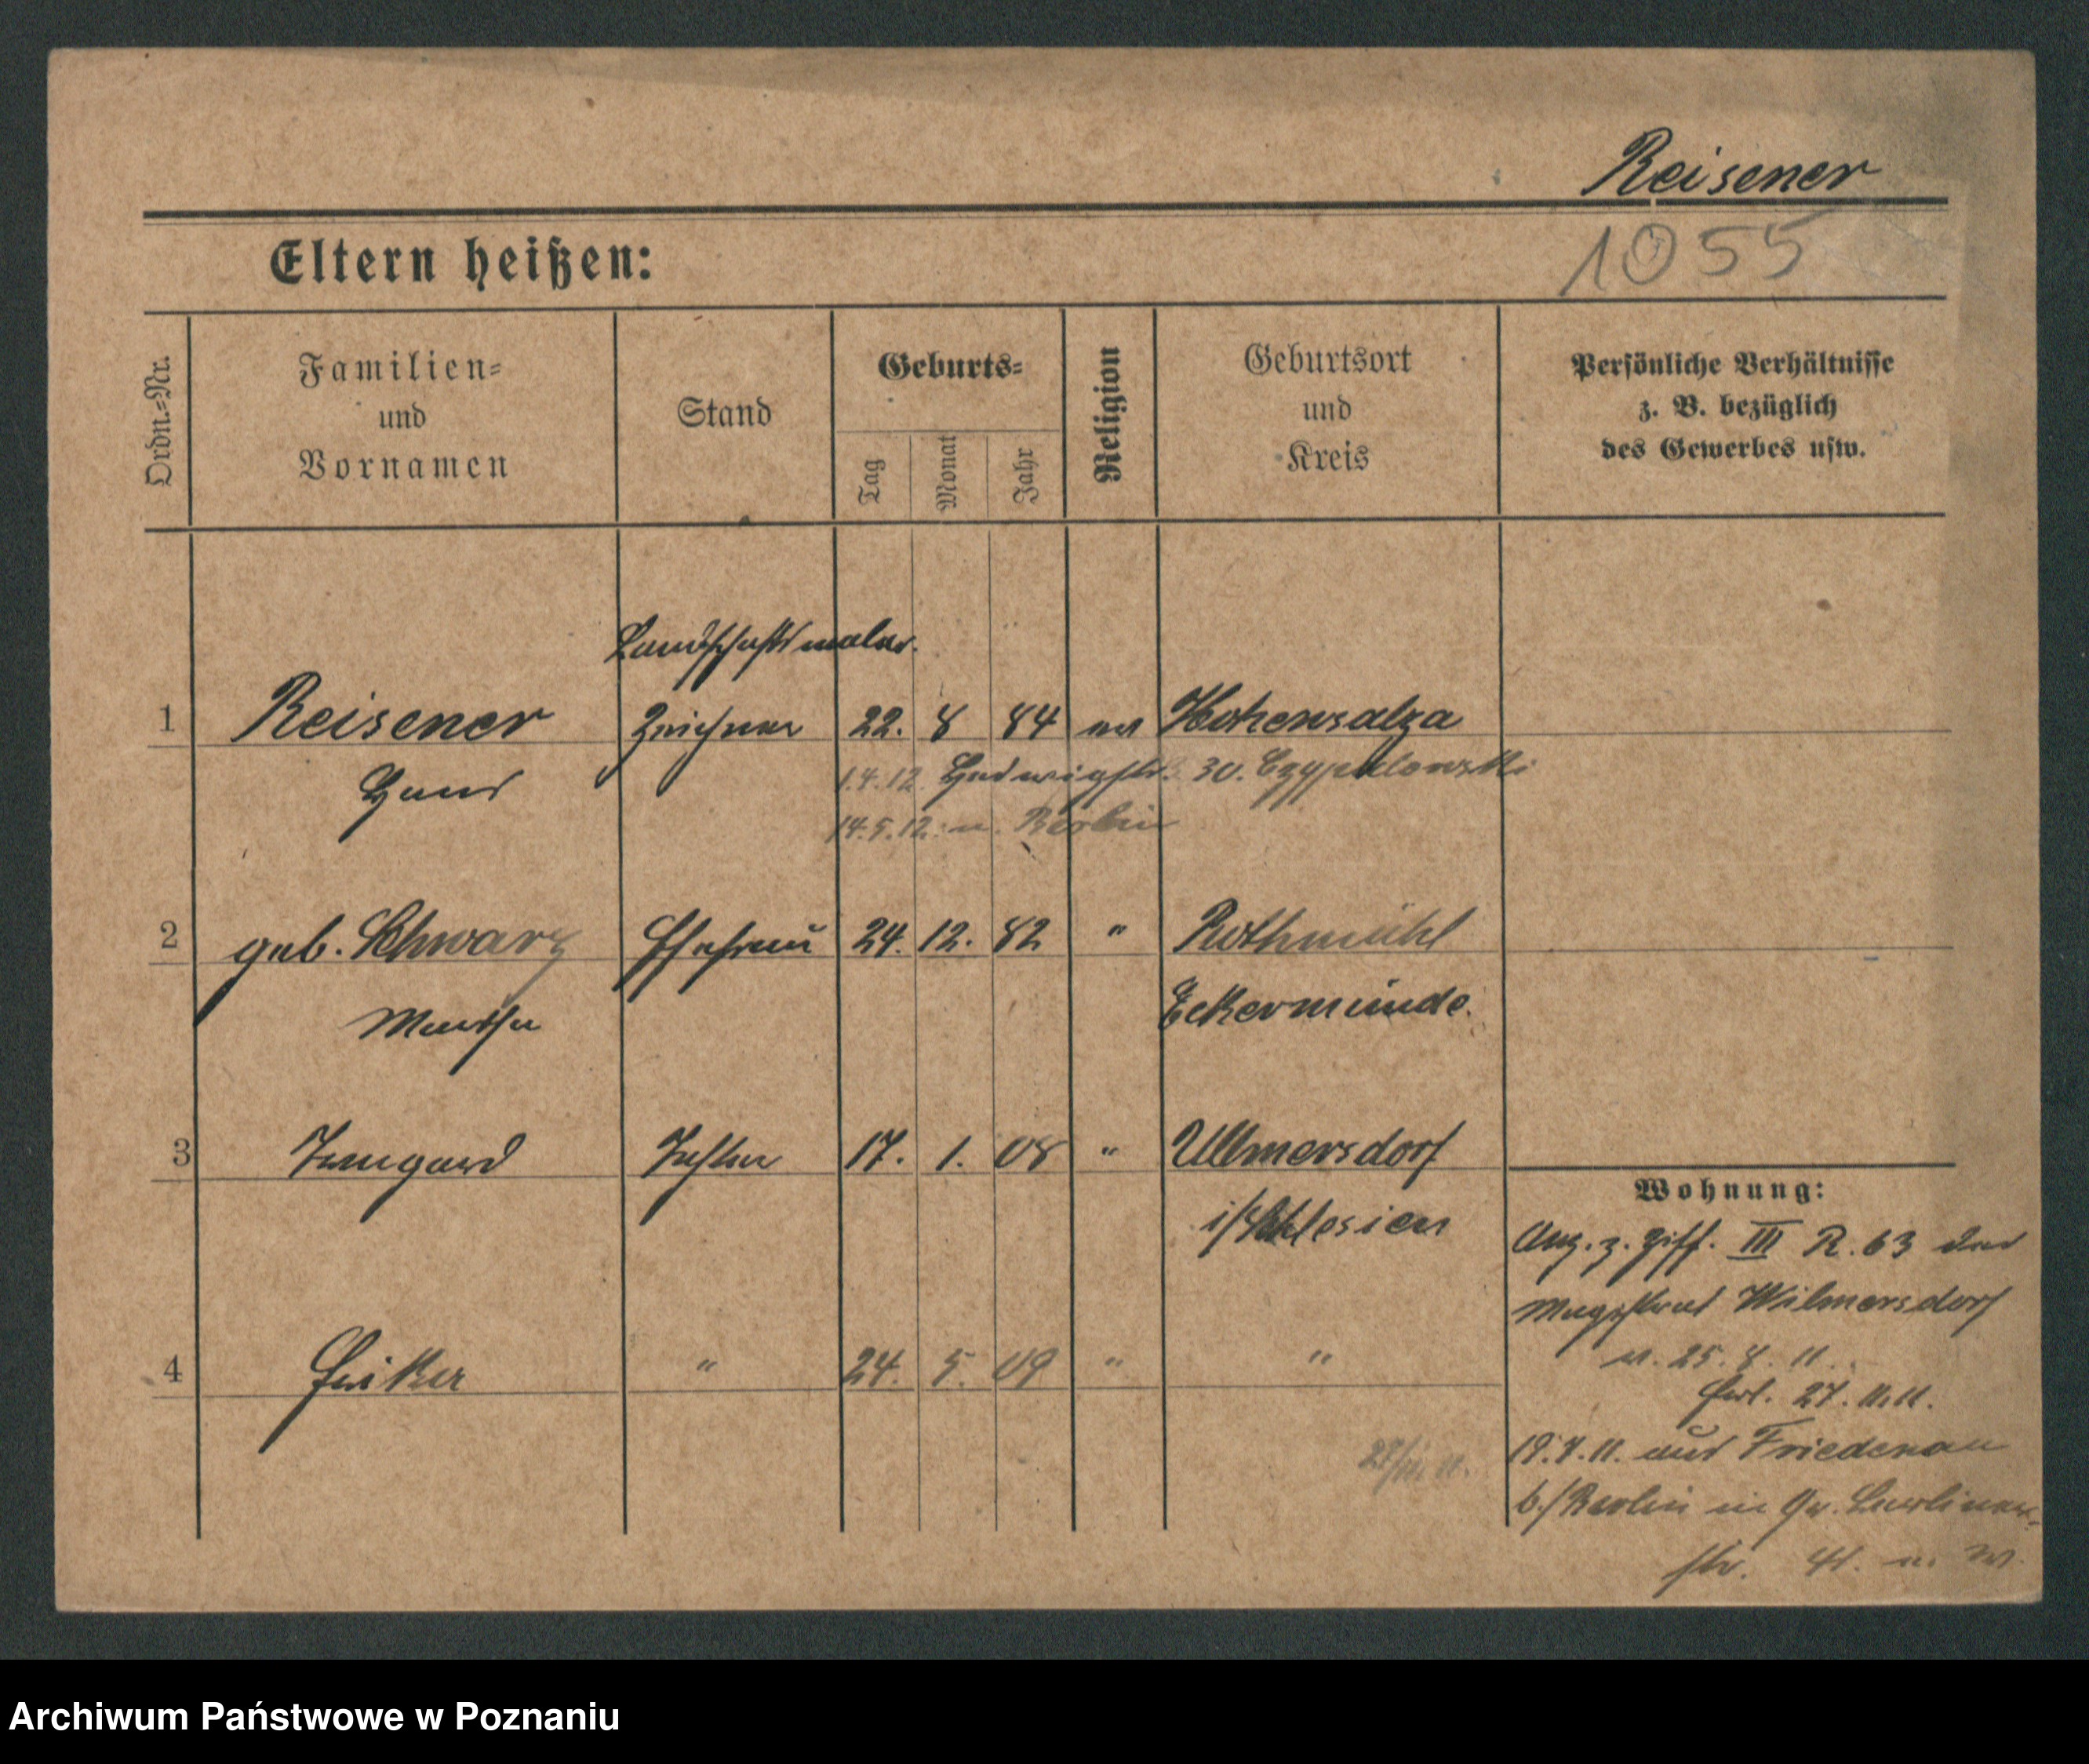 Reisener
1055
Eltern heißen:
Ordn.=Nr.
Familien=
und
Vornamen
Stand
Geburts=
Tag
Monat
Jahr
Religion
Geburtsort
und
Kreis
Persönliche Verhältnisse
z. B. bezüglich
des Gewerbes usw.
Landschaftsmaler.
1 Reisener Zeichner 22. 8 84 ev Hohensalza
Hans 1.4.12 Hedwigstr. 30.
14.5.12. n. Berlin
2 geb. Schwarz Ehefrau 24. 12. 82 " Rothmühl
Martha Eckermünde.
3 Irmgard Tochter 17. 1. 08 " Ullmersdorf
i/Schlesien
4 " 24. 5. 09 " "
Wohnung:
Anz. z. Ziff. III R. 63 des
Magistrat Wilmersdorf
v. 25. 8. 11.
Erl. 27. 11. 11.
aus Friedenau
b./Berlin in Gr. Berliner-
str. 41. n. W.